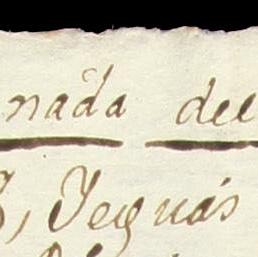 nada del
Yeguas